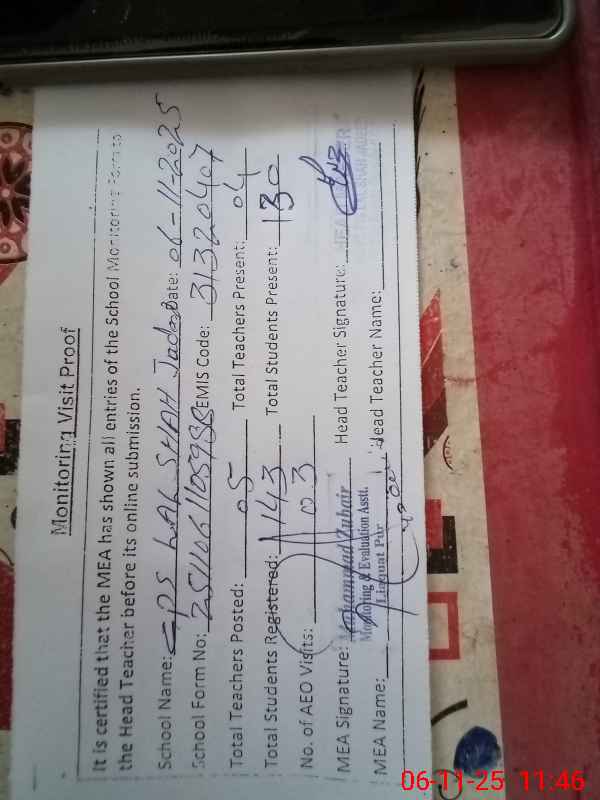 Monitoring Visit Proof
It is certified that the MEA has shown all entries of the School Monitoring Form to
the Head Teacher before its online submission.
School Name: GPS LAL SHAH Jada Date: 06-11-2025
School Form No: EMIS Code: 31320407
Total Teachers Posted: 05 Total Teachers Present: 04
Total Students Registered: 143 Total Students Present: 130
No. of AEO Visits: 03
MEA Signature: Muhammad Zubair Head Teacher Signature:
Monitoring & Evaluation Asstt.
Liaquat Pur
MEA Name: Head Teacher Name:
06-11-25 11:46